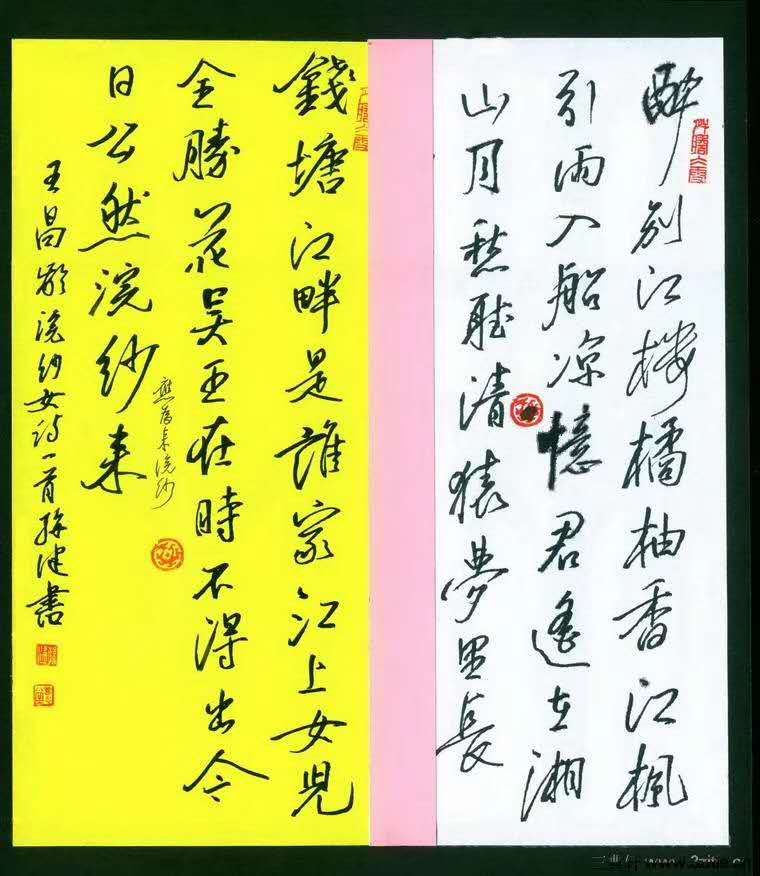 醉别江楼橘柚香江楓
引雨入船凉憶君遙在湘
山月愁聽清猿夢里長
錢塘江畔是誰家江上女兒
全勝花吴王在時不得出今
日公然浣紗来
應為来浣紗
王昌龄浣紗女诗一首書